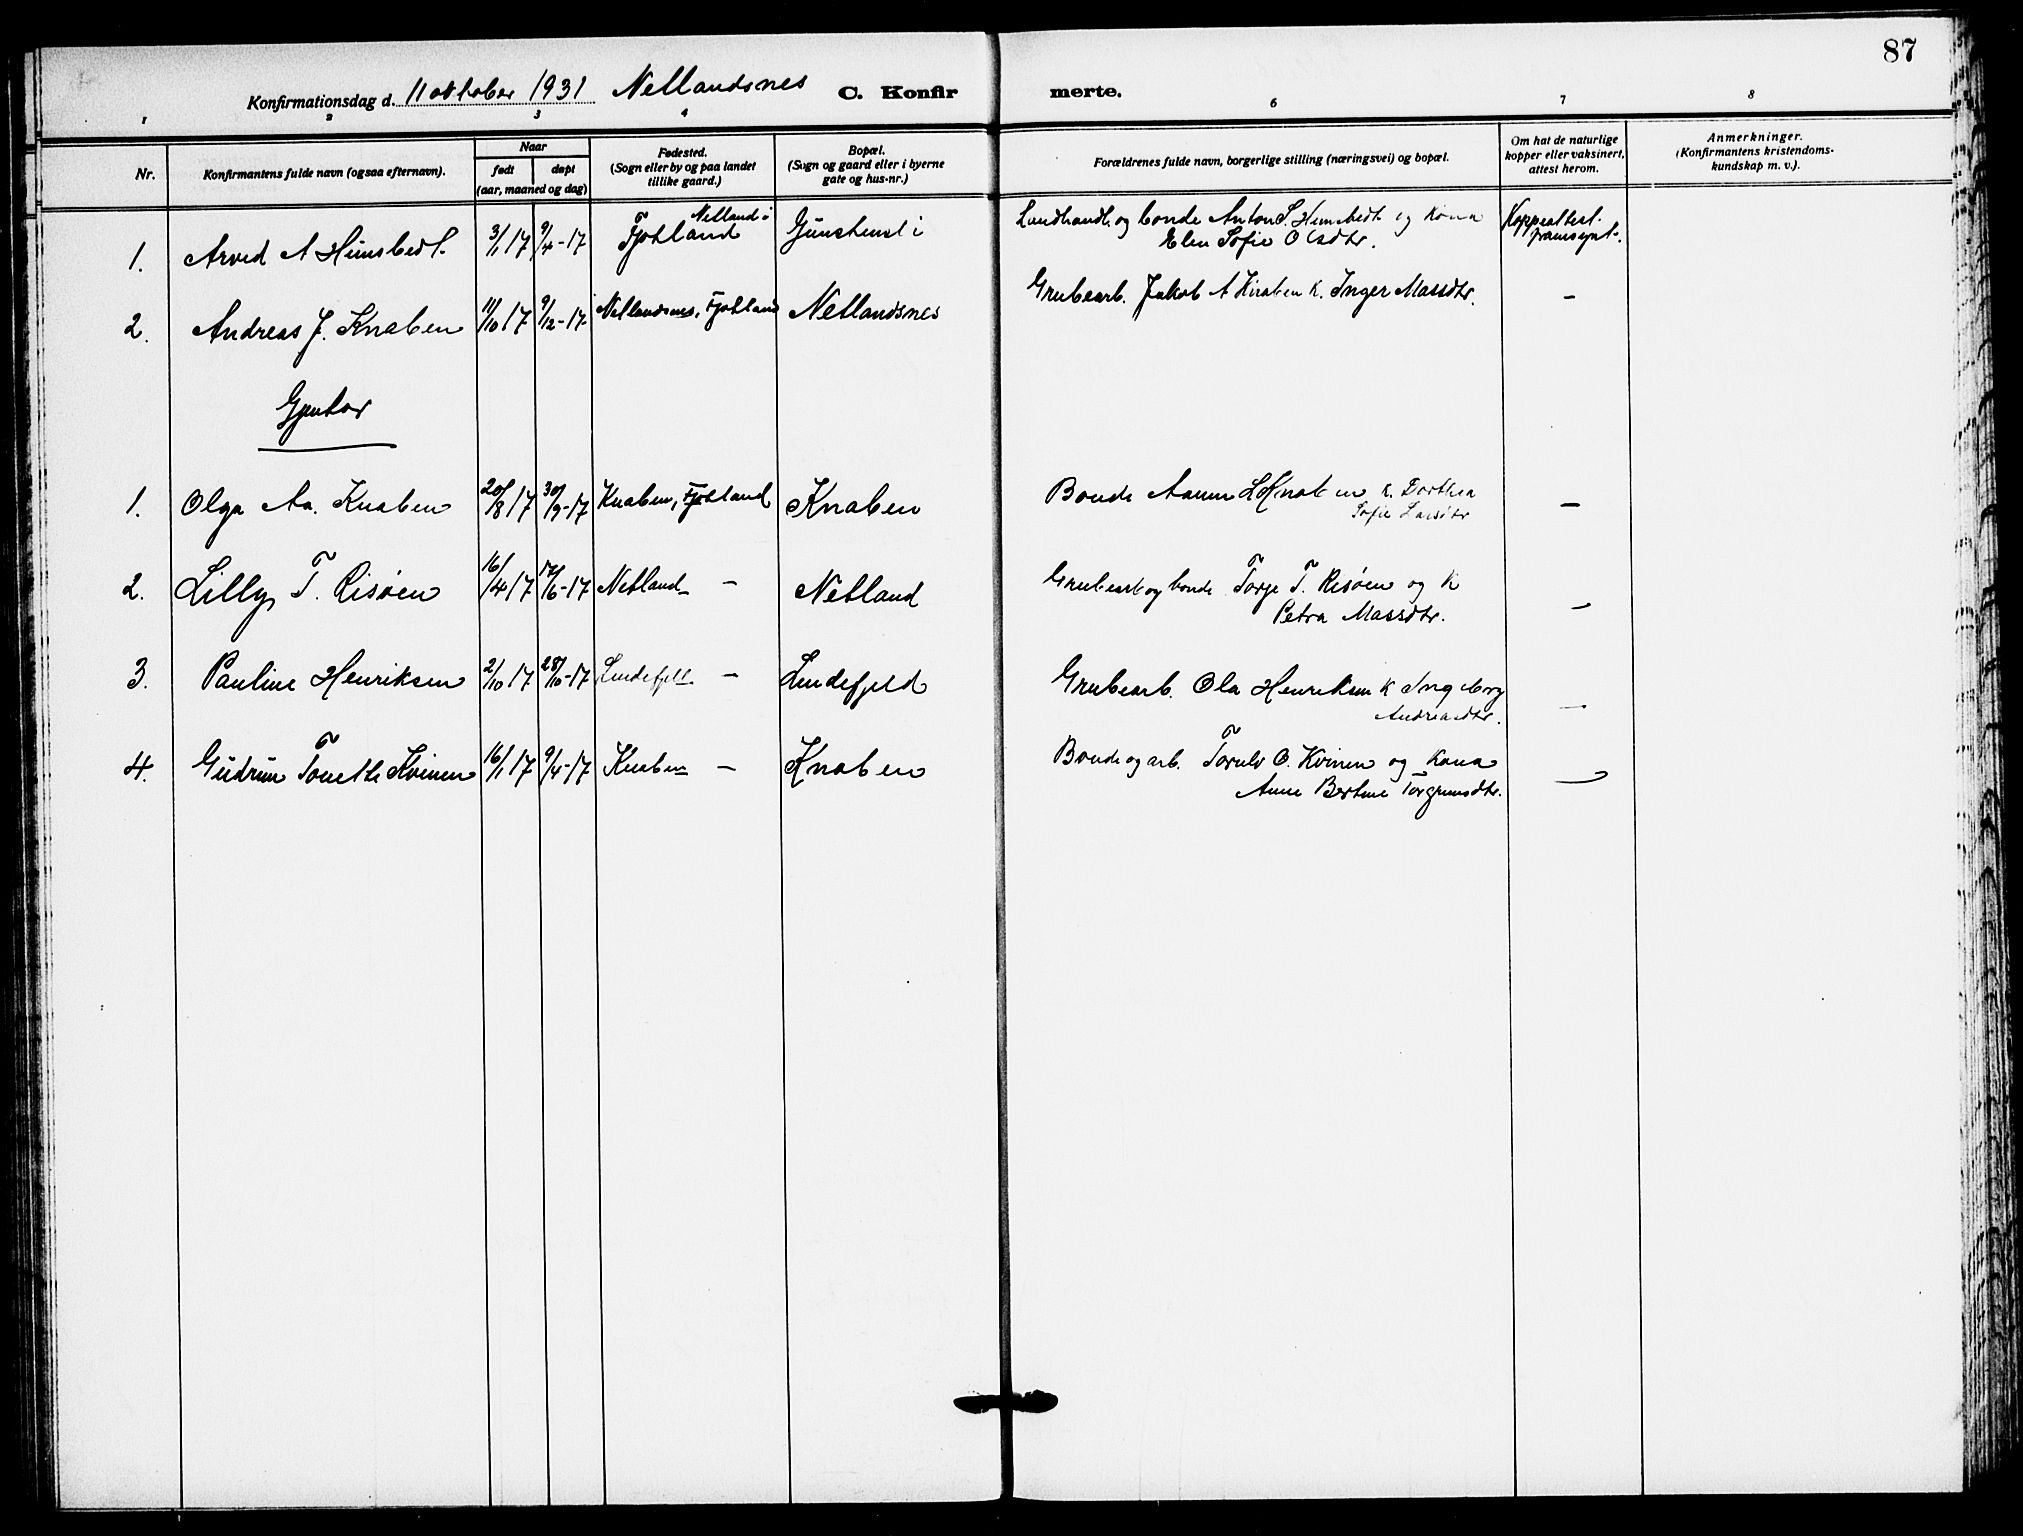 87
Konfirmationsdag d. 11 oktober 1931 Netlandsnes C. Konfirmerte.
1 2 3 4 6 7 8
Nr.
Konfirmantens fulde navn (ogsaa efternavn).
Naar
født døpt
(aar, maaned og dag)
Fødested.
(Sogn eller by og paa landet
tillike gaard.)
Bopæl.
(Sogn og gaard eller i byerne
gate og hus-nr.)
Forældrenes fulde navn, borgerlige stilling (næringsvei) og bopæl.
Om hat de naturlige
kopper eller vaksinert,
attest herom.
Anmerkninger.
(Konfirmantens kristendoms-
kundskap m. v.).
1. Arved A Hunsbedt. 3/1 17 9/4-17 Netland i
Fjotland Landhandl. og bonde Anton S. Hunsbedt og kona
Elen Sofie Olsdtr. Koppeattest
framsynt.
2. Andreas J. Knaben 11/10 17 9/12-17 Netlandsnes, Fjotland Netlandsnes Grubearb. Jakob A Knaben k. Inger Massdtr. —
Gjentor
1. Olga Aa. Knaben 20/8 17 30/9-17 Knaben, Fjotland Knaben Bonde Aanen L Knaben k. Dorthea
Sofie Larsdtr —
2. Lilly T. Risøen 16/4 17 17/6-17 Netland — Netland Grubearb og bonde Torje T. Risøen og k
Petra Massdtr. —
3. Pauline Henriksen 2/10 17 28/10-17 Lindefjell — Lindefjeld Grubearb. Ola Henriksen k Ingeborg
Andreasdtr. —
4. Gudrun Tonette Kvinen 16/1 17 9/4-17 Knaben — Knaben Bonde og arb. Torulv O. Kvinen og kona
Anne Bertine Torgrimsdtr. —